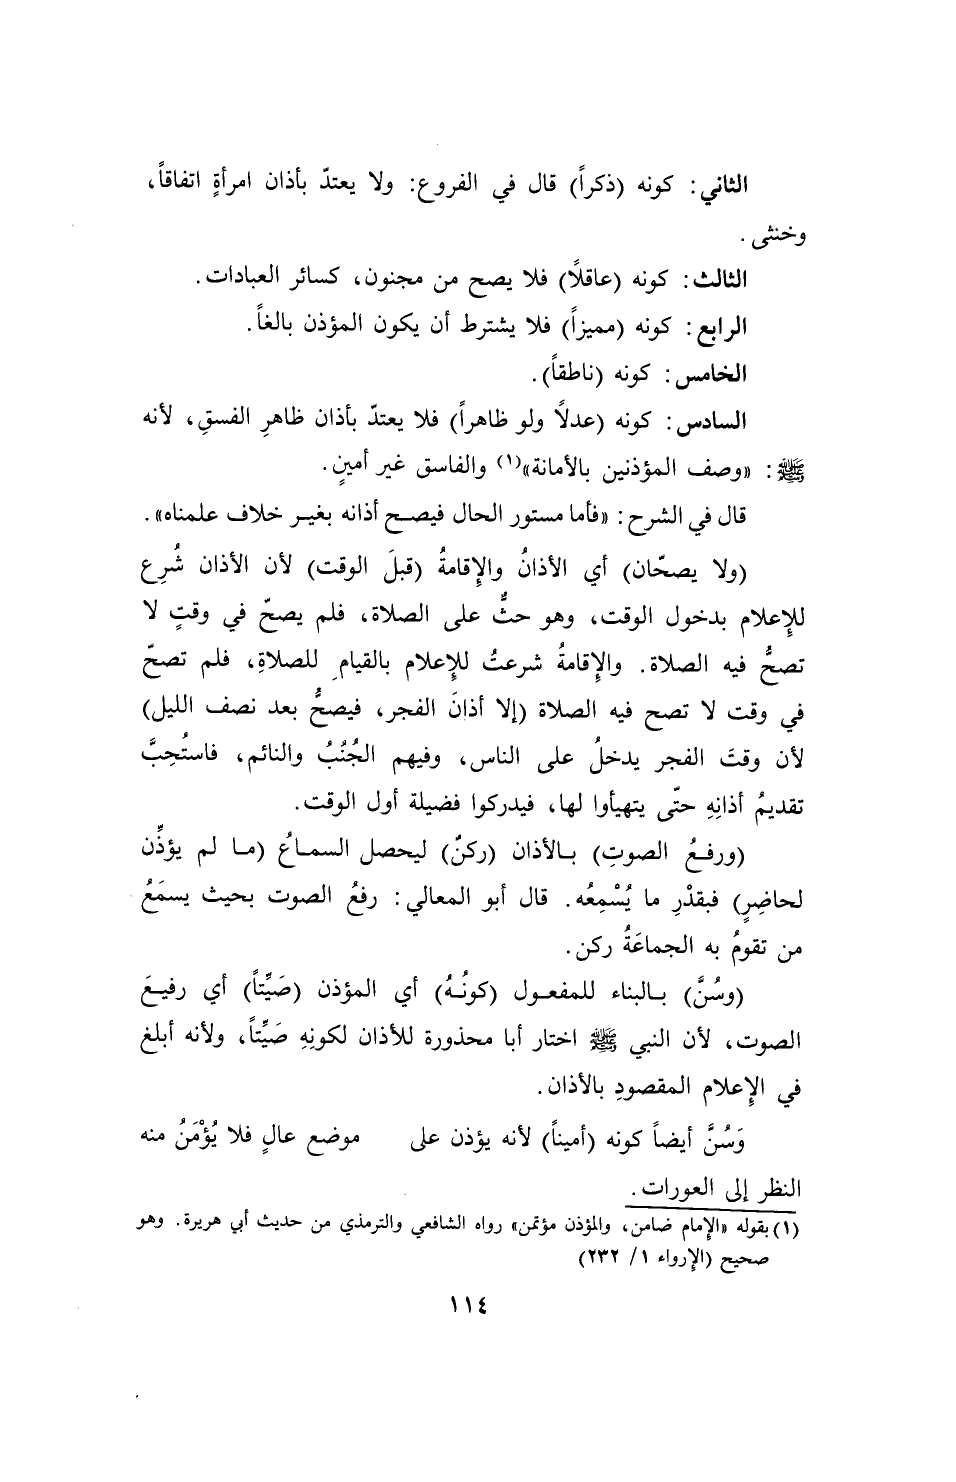 الثاني: كونه (ذكراً) قال في الفروع: ولا يعتدّ بأذان امرأةٍ اتفاقاً،
وخنثى.
الثالث: كونه (عاقلًا) فلا يصح من مجنون، كسائر العبادات.
الرابع: كونه (مميزاً) فلا يشترط أن يكون المؤذن بالغاً.
الخامس: كونه (ناطقاً).
السادس: كونه (عدلًا ولو ظاهراً) فلا يعتدّ بأذان ظاهرِ الفسقِ، لأنه
ﷺ: «وصف المؤذنين بالأمانة»(١) والفاسق غير أمينٍ.
قال في الشرح: «فأما مستور الحال فيصح أذانه بغير خلاف علمناه».
(ولا يصحّان) أي الأذانُ والإقامةُ (قبلَ الوقت) لأن الأذان شُرِع
للإعلام بدخول الوقت، وهو حثٌّ على الصلاة، فلم يصحّ في وقتٍ لا
تصحُّ فيه الصلاة. والإقامةُ شرعتُ للإعلام بالقيامِ للصلاةِ، فلم تصحّ
في وقت لا تصح فيه الصلاة (إلا أذانَ الفجر، فيصحُّ بعد نصف الليل)
لأن وقتَ الفجر يدخلُ على الناس، وفيهم الجُنُبُ والنائم، فاستُحِبَّ
تقديمُ أذانِهِ حتّى يتهيأوا لها، فيدركوا فضيلة أول الوقت.
(ورفعُ الصوتِ) بالأذان (ركنٌ) ليحصل السماعُ (ما لم يؤذِّن
لحاضِرٍ) فبقدْرِ ما يُسْمِعُه. قال أبو المعالي: رفعُ الصوت بحيث يسمَعُ
من تقومُ به الجماعَةُ ركن.
(وسُنَّ) بالبناء للمفعول (كونُهُ) أي المؤذن (صَيِّتاً) أي رفيعَ
الصوت، لأن النبي ﷺ اختار أبا محذورة للأذان لكونِهِ صَيِّتاً، ولأنه أبلغ
في الإعلام المقصودِ بالأذان.
وَسُنَّ أيضاً كونه (أميناً) لأنه يؤذن على موضع عالٍ فلا يُؤْمَنُ منه
النظر إلى العورات.
(١) بقوله «الإمام ضامن، والمؤذن مؤتمن» رواه الشافعي والترمذي من حديث أبي هريرة. وهو
صحيح (الإرواء ١/ ٢٣٢)
١١٤